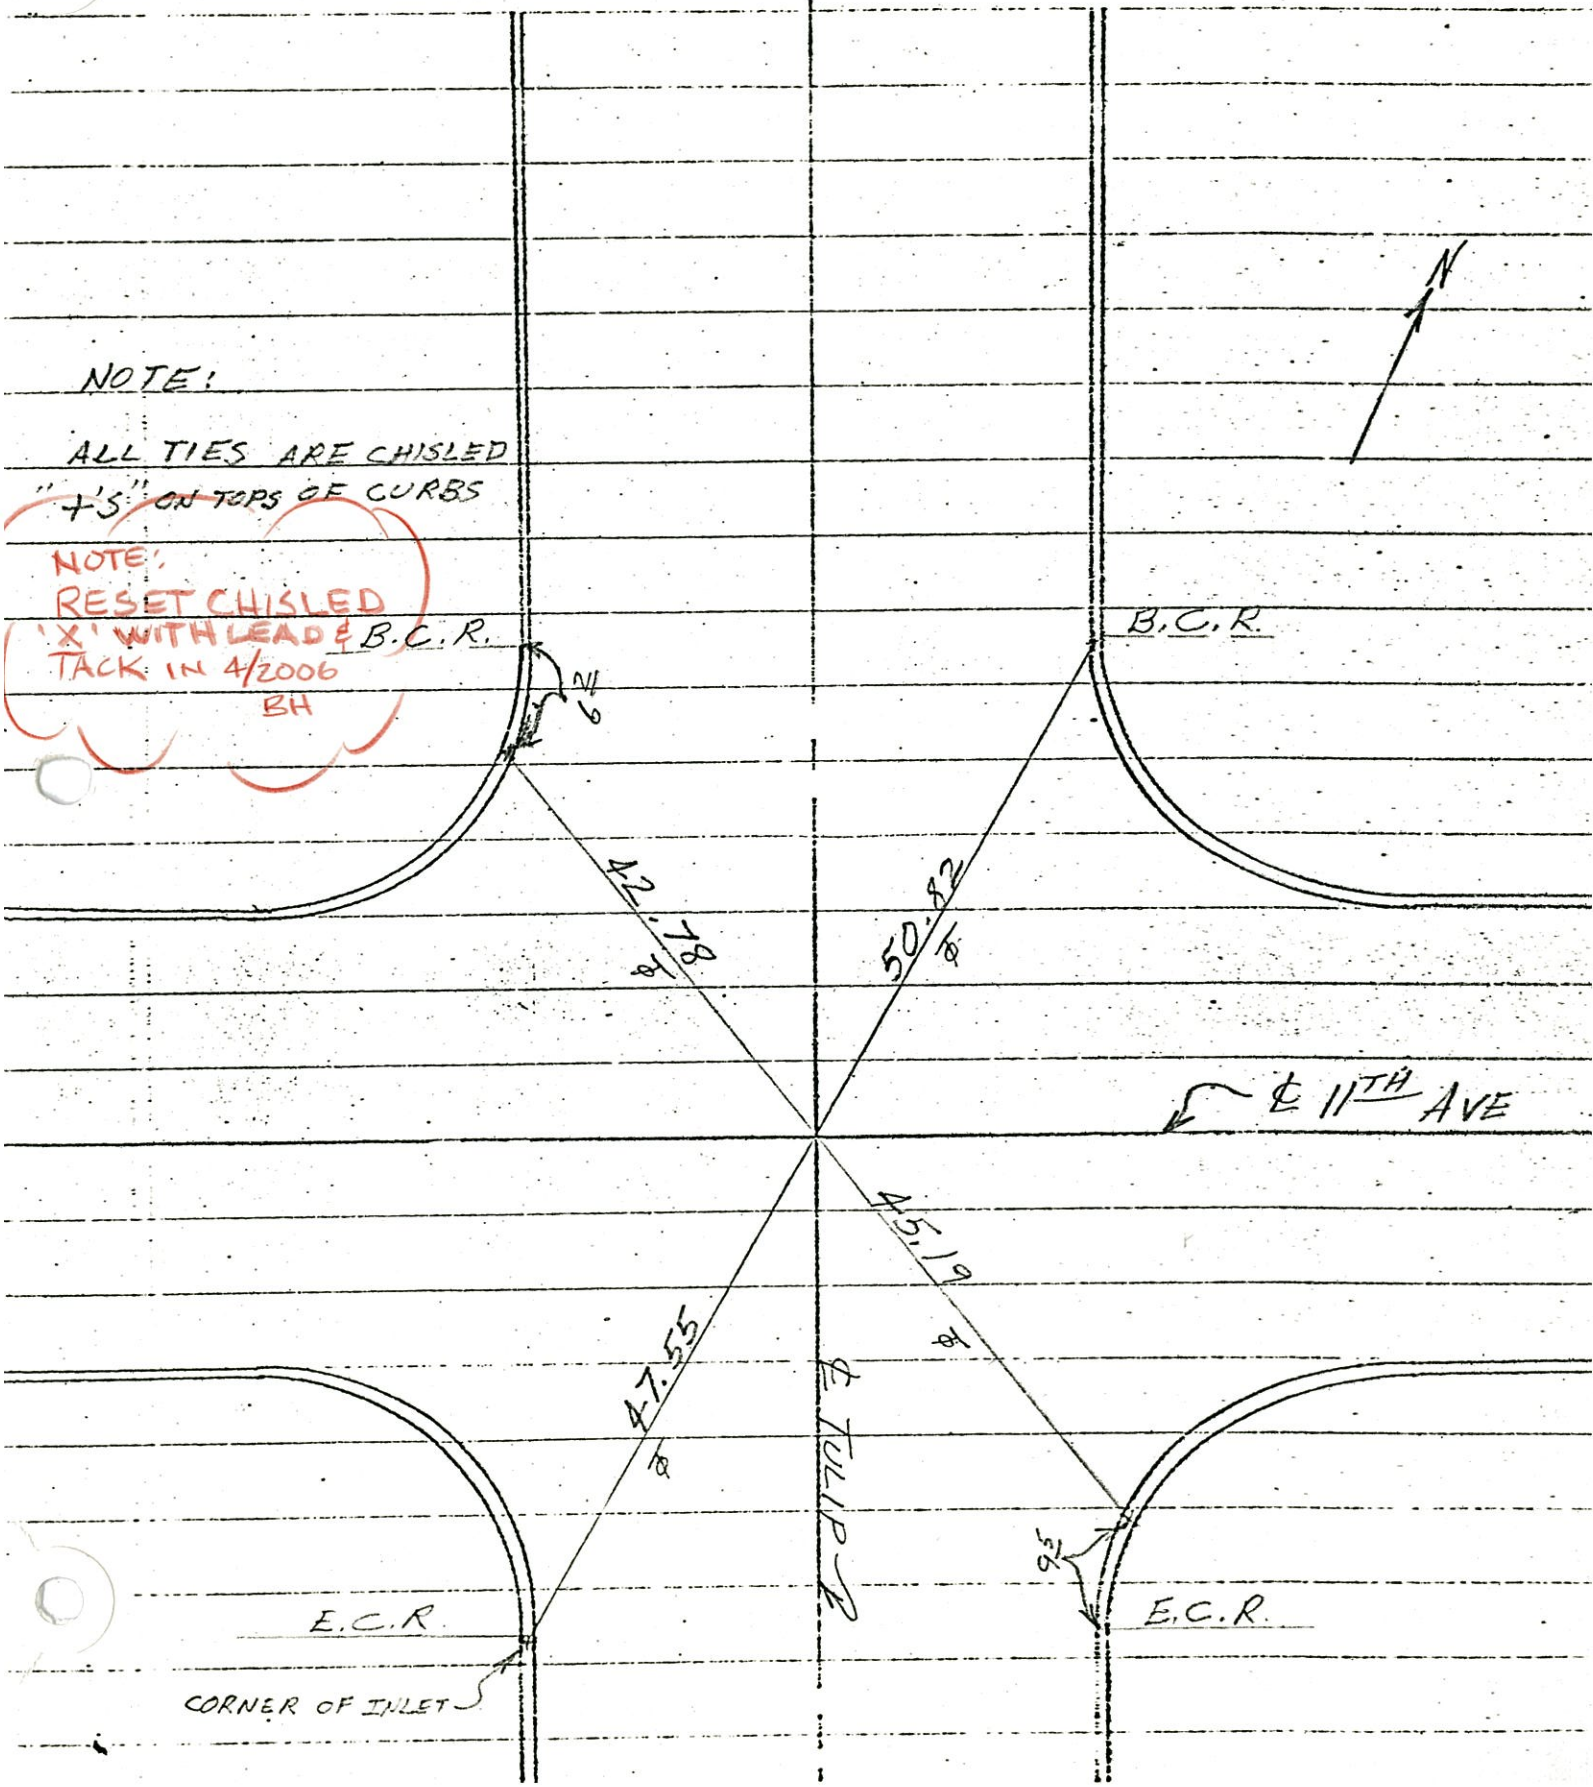 N
NOTE:
ALL TIES ARE CHISLED
"+'S" ON TOPS OF CURBS
NOTE:
RESET CHISLED
'X' WITH LEAD &
TACK IN 4/2006
BH
B.C.R.
B.C.R.
42.78
50.82
℄ 11TH AVE
45.19
47.55
℄ TULIP
95
E.C.R.
E.C.R.
CORNER OF INLET